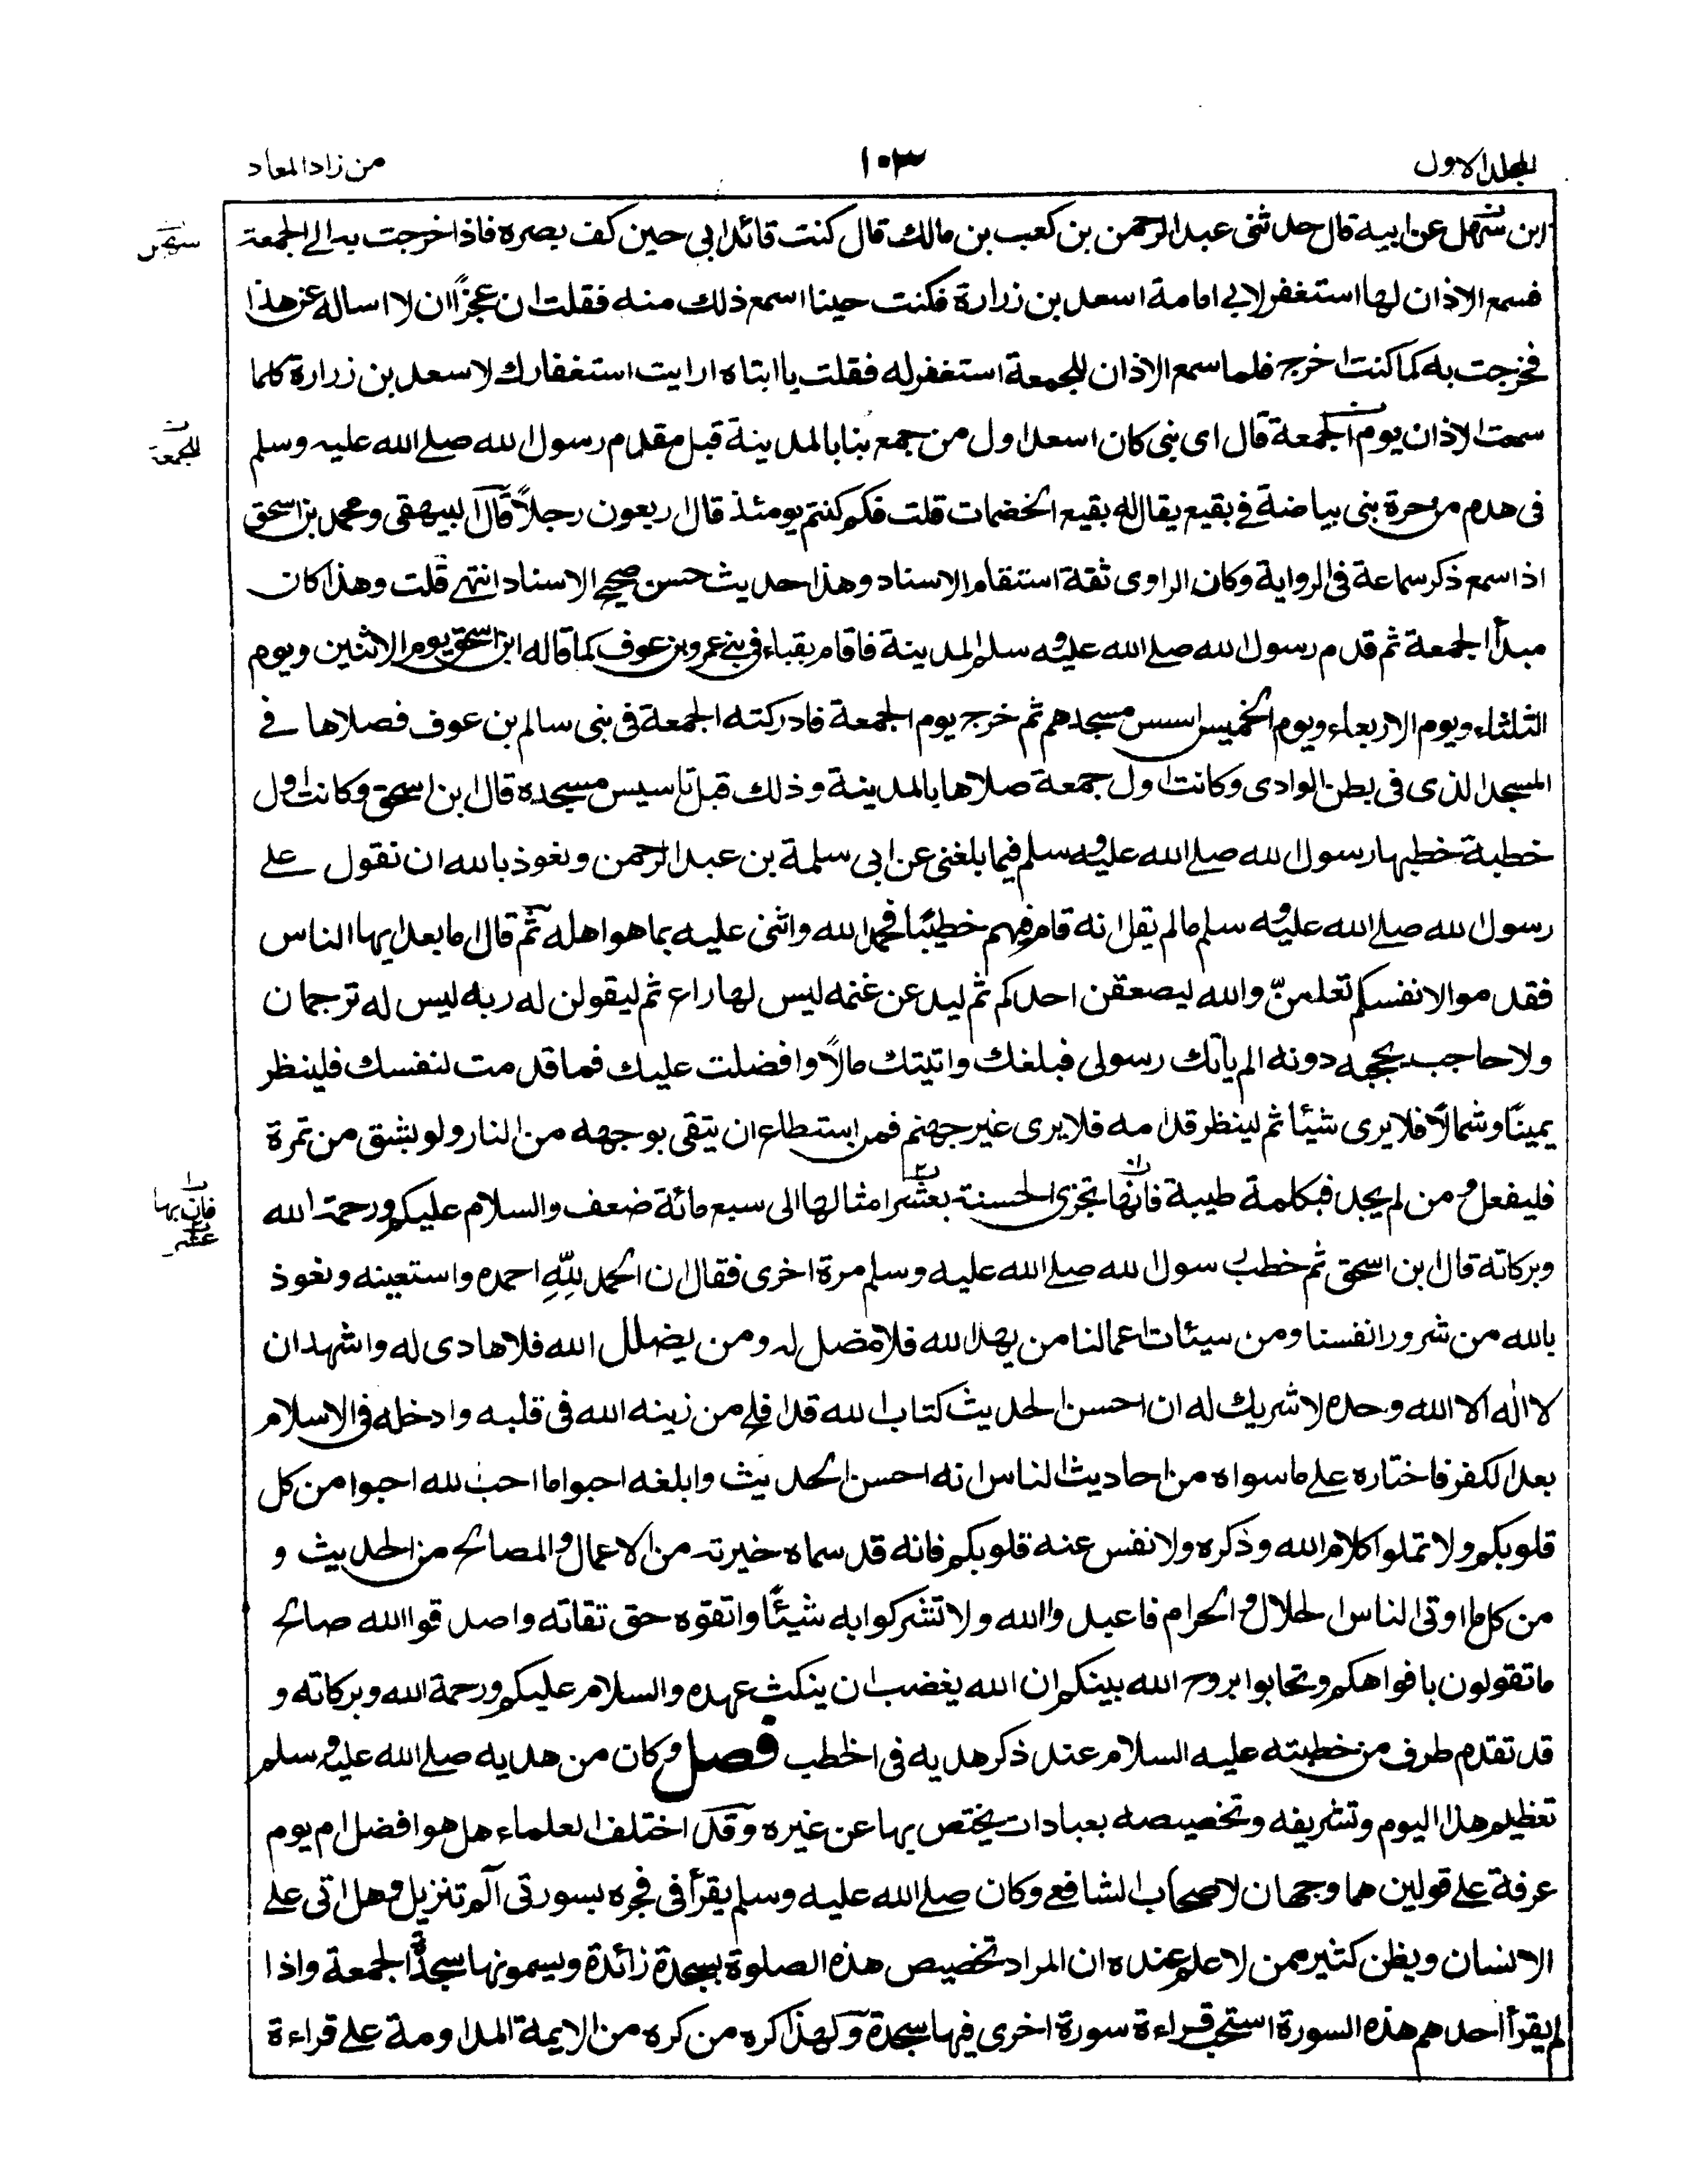 المجلد الاول
١٠٣
من زاد المعاد
ابن سهل عن ابيه قال حدثنى عبد الرحمن بن كعب بن مالك قال كنت قائد ابى حين كف بصره فاذا خرجت به الى الجمعة
فسمع الاذان لها استغفر لابى امامة اسعد بن زرارة فكنت حينا اسمع ذلك منه فقلت ان عجزًا ان لا اساله عن هذا
فخرجت به كما كنت اخرج فلما سمع الاذان للجمعة استغفر له فقلت يا ابتاه ارايت استغفارك لاسعد بن زرارة كلما
سمعت الاذان يوم الجمعة قال اى بنى كان اسعد اول من جمع بنا بالمدينة قبل مقدم رسول الله صلى الله عليه وسلم
للجمعة
فى هدم من حرة بنى بياضة فى بقيع يقال له بقيع الخضمات قلت فكم كنتم يومئذ قال اربعون رجلاً قال البيهقى ومحمد بن اسحق
اذا سمع ذكر سماعة فى الرواية وكان الراوى ثقة استقام الاسناد وهذا حديث حسن صحيح الاسناد انتهى قلت وهذا كان
مبدأ الجمعة ثم قدم رسول الله صلى الله عليه وسلم المدينة فاقام بقباء فى بنى عمرو بن عوف كما قاله ابن اسحق يوم الاثنين ويوم
الثلثاء ويوم الاربعاء ويوم الخميس اسس مسجدهم ثم خرج يوم الجمعة فادركته الجمعة فى بنى سالم بن عوف فصلاها فى
المسجد الذى فى بطن الوادى وكانت اول جمعة صلاها بالمدينة وذلك قبل تاسيس مسجده قال ابن اسحق وكانت اول
خطبة خطبها رسول الله صلى الله عليه وسلم فيما بلغنى عن ابى سلمة بن عبد الرحمن ونعوذ بالله ان نقول على
رسول الله صلى الله عليه وسلم ما لم يقل انه قام فيهم خطيبًا فحمد الله واثنى عليه بما هو اهله ثم قال اما بعد ايها الناس
فقدموا لانفسكم تعلمنّ والله ليصعقن احدكم ثم ليدعن غنمه ليس لها راع ثم ليقولن له ربه ليس له ترجمان
ولا حاجب يحجبه دونه الم ياتك رسولى فبلغك واتيتك مالاً وافضلت عليك فما قدمت لنفسك فلينظر
يمينًا وشمالًا فلا يرى شيئا ثم لينظر قدامه فلا يرى غير جهنم فمن استطاع ان يتقى بوجهه من النار ولو بشق من تمرة
فليفعل ومن لم يجد فبكلمة طيبة فانها تجزى الحسنة بعشر امثالها الى سبع مائة ضعف والسلام عليكم ورحمة الله
فان بها
عشر
وبركاته قال ابن اسحق ثم خطب رسول الله صلى الله عليه وسلم مرة اخرى فقال ان الحمد لِلّهِ احمده واستعينه ونعوذ
بالله من شرور انفسنا ومن سيئات اعمالنا من يهد الله فلا مضل له ومن يضلل الله فلا هادى له واشهد ان
لا اله الا الله وحده لا شريك له ان احسن الحديث كتاب الله قد افلح من زينه الله فى قلبه وادخله فى الاسلام
بعد الكفر فاختاره على ما سواه من احاديث الناس انه احسن الحديث وابلغه احبوا ما احب الله احبوا من كل
قلوبكم ولا تملوا كلام الله وذكره ولا نفس عنه قلوبكم فانه قد سماه خيرته من الاعمال والمصالح من الحديث و
من كل ما اوتى الناس الحلال والحرام فاعبدوا الله ولا تشركوا به شيئًا واتقوه حق تقاته واصدقوا الله صالح
ما تقولون بافواهكم وتحابوا بروح الله بينكم ان الله يغضب ان ينكث عهده والسلام عليكم ورحمة الله وبركاته و
قد تقدم طرف من خطبته عليه السلام عند ذكر هديه فى الخطب فصل وكان من هديه صلى الله عليه وسلم
تعظيم هذا اليوم وتشريفه وتخصيصه بعبادات يختص بها عن غيره وقد اختلف العلماء هل هو افضل ام يوم
عرفة على قولين هما وجهان لاصحاب الشافعى وكان صلى الله عليه وسلم يقرأ فى فجره بسورتى آلم تنزيل وهل اتى على
الانسان ويظن كثير ممن لا علم عنده ان المراد تخصيص هذه الصلوة بسجدة زائدة ويسمونها سجدة الجمعة واذا
لم يقرأ احدهم هذه السورة استحب قراءة سورة اخرى فيها سجدة ولهذا كره من كره من الايمة المداومة على قراءة